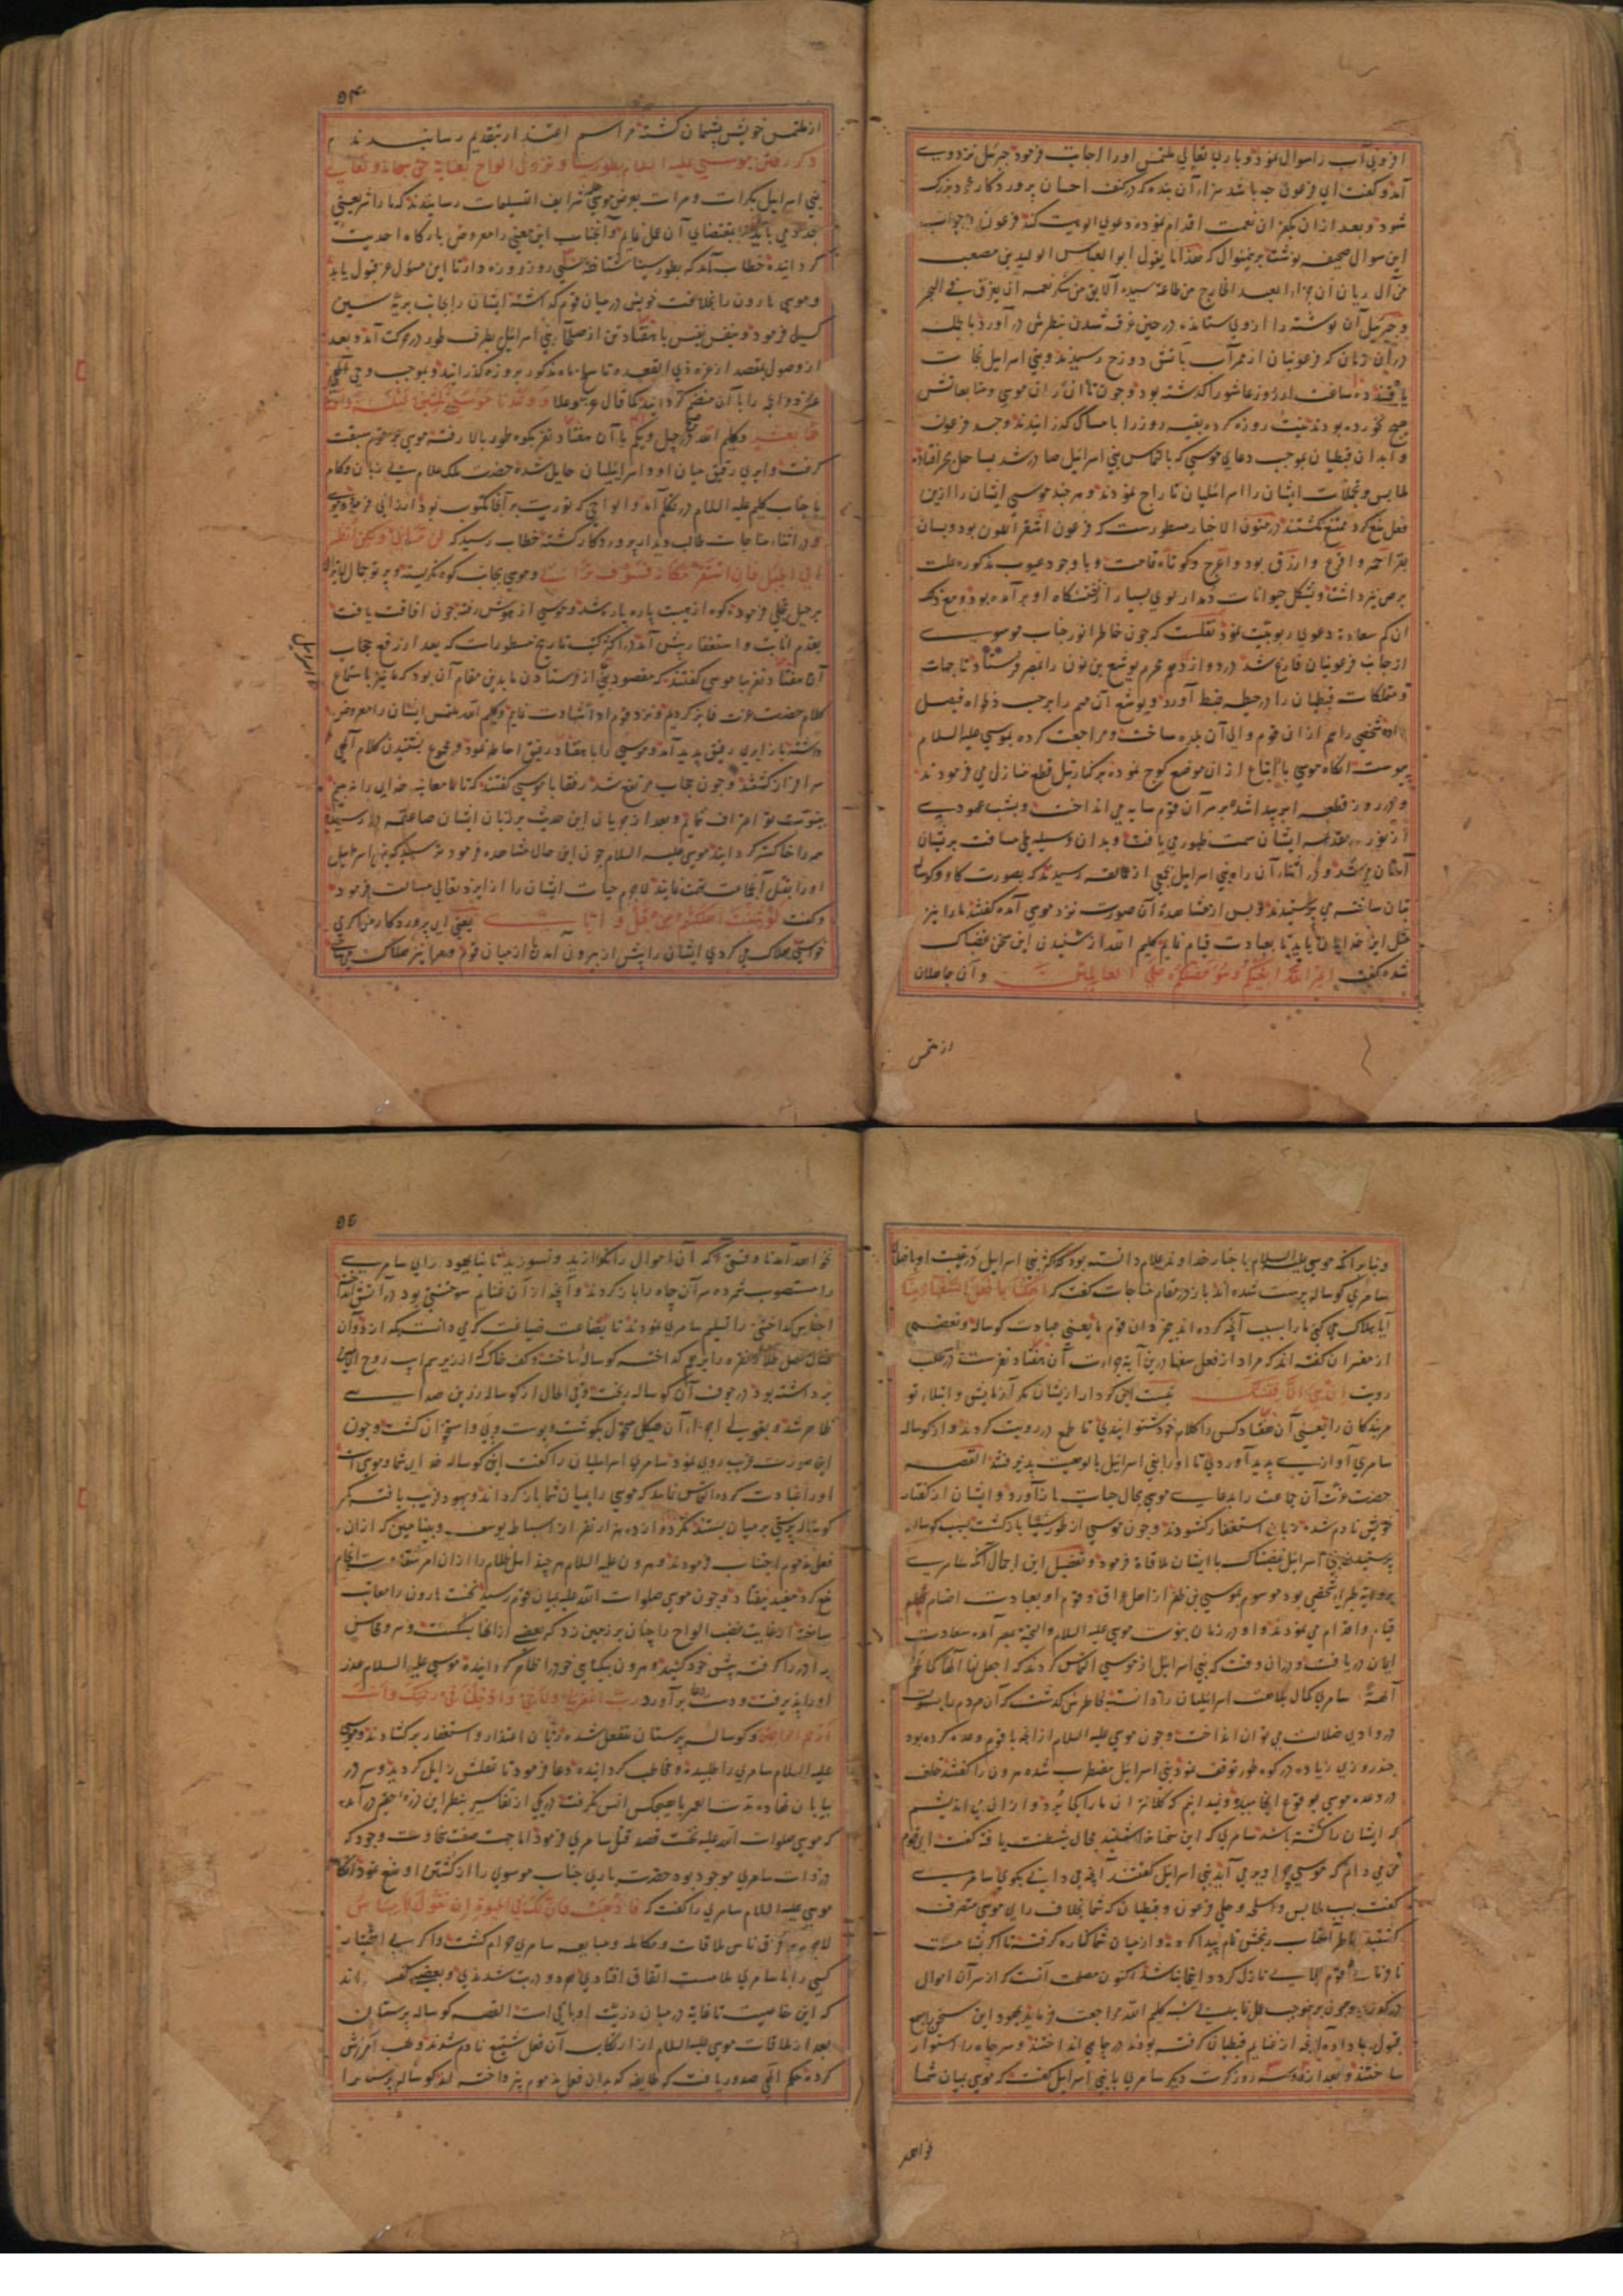 افزونی آب را سوال نمود و باری تعالی ملتمس اورا اجابت فرمود جبرئیل نزد وی
آمد و گفت ای فرعون چه باشد سزاء آن بنده که در کنف احسان پروردگار خود بزرگ
شود و بعد از آن بکفران نعمت اقدام نموده دعوی الوهیت کند فرعون در جواب
این سوال صحیفه نوشت برینمنوال که هذا ما یقول ابو العباس الولید بن مصعب
من آل ریان ان جزاء العبد الخارج من طاعة سیده الابق من شکر نعمه ان یغرق فی البحر
و جبرئیل آن نوشته را از وی ستانده در حین غرق شدن بنظرش در آورد بالجمله
در آن زمان که فرعونیان از ممر آب بآتش دوزخ رسیدند و بنی اسرائیل نجات
یافتند ده ساعت از روز عاشورا گذشته بود و چون تا آن زمان موسی و متابعانش
هیچ نخورده بودند نیت روزه کرده بقیه روز را بامساک گذرانیدند و جسد فرعون
و ابدان قبطیان بموجب دعای موسی که بالتماس بنی اسرائیل صادر شد بساحل بحر افتاده
ملابس و تجملات ایشان را اسرائیلیان تاراج نمودند و هر چند موسی ایشان را ازین
فعل منع کرد ممتنع نگشتند در متون الاخبار مسطورست که فرعون اشقر اللون بود و بسان
بقر احمر و اقرع و ازرق بود و اعرج و کوتاه قامت و با وجود عیوب مذکوره علت
برص نیز داشت و بشکل حیوانات دمدار موی بسیار از نخستگاه او بر آمده بود و مع ذلک
آن کم سعادت دعوی ربوبیت نمود نقلست که چون خاطر انور جناب موسوی
از جانب فرعونیان فارغ شد در دوازدهم محرم یوشع بن نون را بمصر فرستاد تا جهات
و متملکات قبطیان را در حیطه ضبط آورد و یوشع آن مهم را بر حسب دلخواه فیصل
داده شخصی را هم از ان قوم والی آن بلده ساخت و مراجعت کرده بموسی علیه السلام
پیوست آنگاه موسی با اتباع از ان موضع کوچ نموده بر کنار نیل قطع منازل می فرمودند
و هر روز قطعه ابر پیدا شده بر سر آن قوم سایه می انداخت و بشب عمودی
از نور در مقدمه ایشان سمت ظهور می یافت و بدان وسیله طی مسافت بریشان
آسان می شد و در اثناء آن راه بنی اسرائیل بجمعی از عمالقه رسیدند که بصورت گاو و گوساله
بتان ساخته می پرستیدند و پس از مشاهده آن صورت نزد موسی آمده گفتند مارا نیز
مثل اینها خدایان باید تا بعبادت قیام نمائیم کلیم الله از شنیدن این سخن غضبناک
شده گفت اغیر الله ابغیکم الها و هو فضلکم علی العالمین و آن جاهلان
از ملتمس
۵۴
از ملتمس خویش پشیمان گشته مراسم اعتذار بتقدیم رسانیدند
ذکر رفتن موسی علیه السلام بطور سینا و نزول الواح بعنایت حق سبحانه و تعالی
بنی اسرائیل بکرات و مرات بعرض موسی شرایف التسلیمات رسانیدند که ما را شریعتی
مجدد می باید که بمقتضای آن عمل نمائیم و آنجناب این معنی را معروض بارگاه احدیت
گردانیده خطاب آمد که بطور سینا شتافته سی روز روزه دار تا این مسؤل عز قبول یابد
و موسی هارون را بخلافت خویش در میان قوم گذاشته ایشان را بجانب بریه سین
گسیل فرمود و بنفس نفیس با هفتاد تن از صلحاء بنی اسرائیل بطرف طور در حرکت آمد و بعد
از وصول بمقصد از غره ذی القعده تا سلخ ماه مذکور بروزه گذرانید و بموجب وحی الهی
عشر ذو الحجه را با آن منضم گردانید کما قال عز و علا و واعدنا موسی ثلثین لیلة و اتممناها
بعشر و کلیم الله در چهل و یکم با آن هفتاد نفر بکوه طور بالا رفته موسی بر قوم سبقت
گرفت و ابری رقیق میان او و اسرائیلیان حایل شده حضرت ملک علام بی زبان و کام
با جناب کلیم علیه السلام در تکلم آمد و الواحی که توریت بر آنها مکتوب بود ارزانی فرمود موسی
در اثناء مناجات طالب دیدار پروردگار گشته خطاب رسید که لن ترانی و لکن انظر
الی الجبل فان استقر مکانه فسوف ترانی و موسی بجانب کوه نگریسته و پرتو جمال لایزال
بر جبل تجلی فرموده کوه از هیبت پاره پاره شد و موسی از هوش رفته چون افاقت یافت
بقدم انابت و استغفار پیش آمد در اکثر کتب تاریخ مسطورات که بعد از رفع حجاب
آن هفتاد نفر با موسی گفتند که مقصود بنی اسرائیل از فرستادن ما بدین مقام آن بود که ما نیز باستماع
کلام حضرت عزت فایز گردیم و نزد قوم اداء شهادت نمائیم و کلیم الله ملتمس ایشان را معروض
داشته باز ابری رقیق پدید آمد و موسی را با هفتاد رفیق احاطه نمود و مجموع بشنیدن کلام آلهی
سرافراز گشتند و چون حجاب مرتفع شد رفقا با موسی گفتند که تا ما معاینه خدای را نه بینیم
بنبوت تو اعتراف ننمائیم و بعد از جریان این حدیث بر زبان ایشان صاعقه در رسید
همه را خاکستر گردانید موسی علیه السلام چون این حال مشاهده فرمود ترسید که بنی اسرائیل
اورا بقتل آنجماعت متهم نمایند لاجرم حیات ایشان را از ایزد تعالی مسالت فرمود
و گفت لو شئت اهلکتهم من قبل و ایای یعنی ای پروردگار من اگر می
خواستی هلاک می کردی ایشان را پیش از بیرون آمدن از میان قوم و مرا نیز هلاک می ساختی
و بنا بر آنکه موسی علیه السلام باخبار خداوند علام دانسته بود که اکثر بنی اسرائیل در غیبت او باضلال
سامری گوساله پرست شده اند باز در مقام مناجات گفت که اتهلکنا بما فعل السفهاء منا
آیا هلاک می کنی مارا بسبب آنچه کرده اند بیخردان قوم ما یعنی عبادت گوساله و بعضی
از مفسران گفته اند که مراد از فعل سفها درین آیه جراءت آن هفتاد نفرست در طلب
رویت ان هی الا فتنتک نیست این کردار ازیشان مگر آزمایش و ابتلاء تو
مر بندگان را یعنی آن هفتاد کس را کلام خود شنوانیدی تا طمع در رویت کردند و از گوساله
سامری آوازی پدید آوردی تا اورا بنی اسرائیل بالوهیت پذیرفتند القصه
حضرت عزت آن جماعت را بدعای موسی بحال حیات باز آورد و ایشان از گفتار
خویش نادم شده زبان استغفار گشودند و چون موسی از طور سینا بازگشت بسبب گوساله
پرستیدن بنی اسرائیل غضبناک با ایشان ملاقات فرمود و تفصیل این اجمال آنکه سامری
بروایة طبری شخصی بود موسوم بموسی بن ظفر از اهل عراق و قوم او بعبادت اصنام
قیام و اقدام می نمودند و او در زمان نبوت موسی علیه السلام والتحیة بمصر آمده سعادت
ایمان دریافت و در ان وقت که بنی اسرائیل از موسی التماس کردند که اجعل لنا الها کما لهم
آلهة سامری کمال بلاهت اسرائیلیان را دانسته بخاطرش گذشت که آن مردم را بسهولت
در وادی ضلالت می توان انداخت و چون موسی علیه السلام از آنچه با قوم وعده کرده بود
چند روزی زیاده در کوه طور توقف نمود بنی اسرائیل مضطرب شده هرون را گفتند خلف
در وعده موسی بوقوع انجامید و نمیدانیم که کلانتران ما را بکجا برد و از ان می اندیشیم
که ایشان را کشته باشد سامری که این سخنان شنید مجال شیطنت یافته گفت ای قوم
من می دانم که موسی چرا دیر می آید بنی اسرائیل گفتند آنچه می دانی بگوی سامری
گفت بسبب ملابس و اسلحه و حلی فرعون و قبطیان که شما بخلاف رای موسی متصرف
گشتید خاطر آنجناب رنجش تام پیدا کرده و از میان شما کناره گرفته تا اگر بشامت
نافرمانی قوم بلایی نازل گردد اینجا نباشد اکنون مصلحت آنست که از سر آن اموال
درگذرید و چون بموجب عمل نمایید بی شبه کلیم الله مراجعت فرماید یهود این سخن را بسمع
قبول جا داده آنچه از غنایم قبطیان گرفته بودند در چاهی انداختند و سر چاه را استوار
ساختند و بعد از دو سه روز کرت دیگر سامری بابنی اسرائیل گفت که موسی بمیان شما
نخواهد
۵۵
نخواهد آمد تا وقتی که آن اموال را نگدازید و نسوزید تا نیابیهود رای سامری
را مستصوب شمرده سر آن چاه را باز کردند و آنچه از آن غنایم سوختنی بود در آتش انداخته
اجناس گداختنی را تسلیم سامری نمودند تا بضاعت صناعت گری دانست که از دوان
متصل طلا و نقره را بر هم گداخته گوساله ساخت و کف خاکی که از زیر سم اسب روح الامین
برداشته بود در جوف آن گوساله ریخت و فی الحال از گوساله زرین صدایی
ظاهر شد و بقولی اجزاء آن هیکل مبدل بگوشت و پوست و پی و استخوان گشت و چون
این صورت غریب روی نمود سامری اسرائیلیان را گفت این گوساله خدای شما و موسی است
اورا عبادت کرده التماس نمائید که موسی را بمیان شما باز گرداند و یهود فریب یافته کمر
گوساله پرستی بر میان بستند مگر دوازده هزار نفر از اسباط یوسف و بنیامین که از ان
فعل مذموم اجتناب فرمودند و هرون علیه السلام هر چند اهل ظلام را از ان امر شقاوت انجام
منع کرد مفید نیفتاد و چون موسی صلوات الله علیه بمیان قوم رسید نخست هارون را معاتب
ساخته از غایت غضب الواح را چنان بر زمین زد که بعضی از انها بشکست و سر و محاسن
برادر را گرفته پیش خود کشید و هرون بیگناهی خود را ظاهر گردانیده موسی علیه السلام عذر
اورا پذیرفت و دست دعا برآورد رب اغفر لی و لاخی و ادخلنا فی رحمتک و انت
ارحم الراحمین و گوساله پرستان منفعل شده زبان اعتذار و استغفار برگشادند و موسی
علیه السلام سامری را طلبیده و مخاطب گردانیده دعا فرمود تا عقلش زایل گردید و سر در
بیابان نهاده مدت العمر با هیچکس انس نگرفت در یکی از تفاسیر بنظر این ذره حقیر در آمده
که موسی صلوات الله علیه نخست قصد قتل سامری فرمود اما جهت صفت سخاوت وجود که
در ذات سامری موجود بود حضرت باری جناب موسوی را از کشتن او منع نمود آنگاه
موسی علیه السلام سامری را گفت که فاذهب فان لک فی الحیوة ان تقول لا مساس
لاجرم بر فرق ناس ملاقات و مکالمه و مبایعه سامری حرام گشت و اگر بی اختیار
کسی را با سامری ملامست اتفاق افتادی هر دو در تب شدندی و بعضی گفته اند
که این خاصیت تا غایة در میان ذریت او باقی است القصه گوساله پرستان
بعد از ملاقات موسی علیه السلام از ارتکاب آن فعل شنیع نادم شدند و طلب آمرزش
کردند حکم الهی صدور یافت که طایفه که بدان فعل مذموم نپرداخته اند گوساله پرستانرا